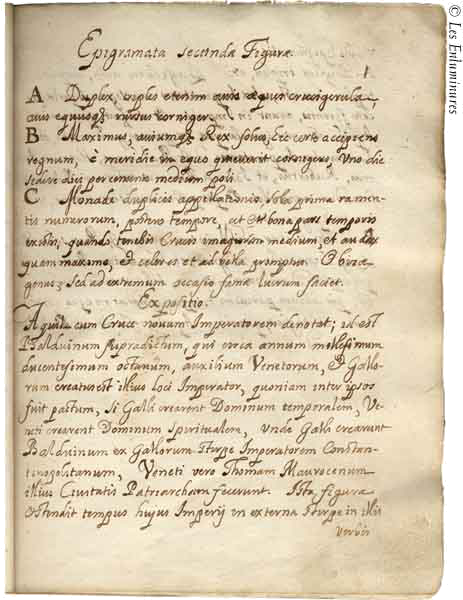 © Les Enluminures
Epigramata secundæ Figuræ
1
A Duplex, triplex etenim avis æque crucigerula
avis equusq; rursus corniger.
B Maximus, aviumq; Rex solus, hic certe accipiens
regnum, è meridie in equo quieverit cornigero. Uno die
dici per cinerem medium poli.
C Monade duplicis appellationis. Sola prima
numerorum, postero tempore, et bona pars temporis
quando tenebis Crucis imaginem medium, et audax
quam maxime, et celer es et ad bella promptus.
genus; Sed ad extremum occasio fame lucrum faciet.
Expositio.
Aquila cum Cruce novum Imperatorem denotat; id est
Balduinum supradictum, qui circa annum millesimum
ducentesimum octavum, auxilium Venetorum, & Gallo-
rum creatus est illius loci Imperator, quoniam inter ipsos
fuit pactum, si Galli crearent Dominum temporalem, Ve-
neti crearent Dominum Spiritualem, unde Galli crearunt
Balduinum ex Gallorum sturpe Imperatorem Constan-
tinopolitanum, Veneti vero Thomam Maurocenum
illius Civitatis Patriarcham fecerunt. Ista figura
ostendit tempus hujus Imperij in externa sturpe in illis
verbis